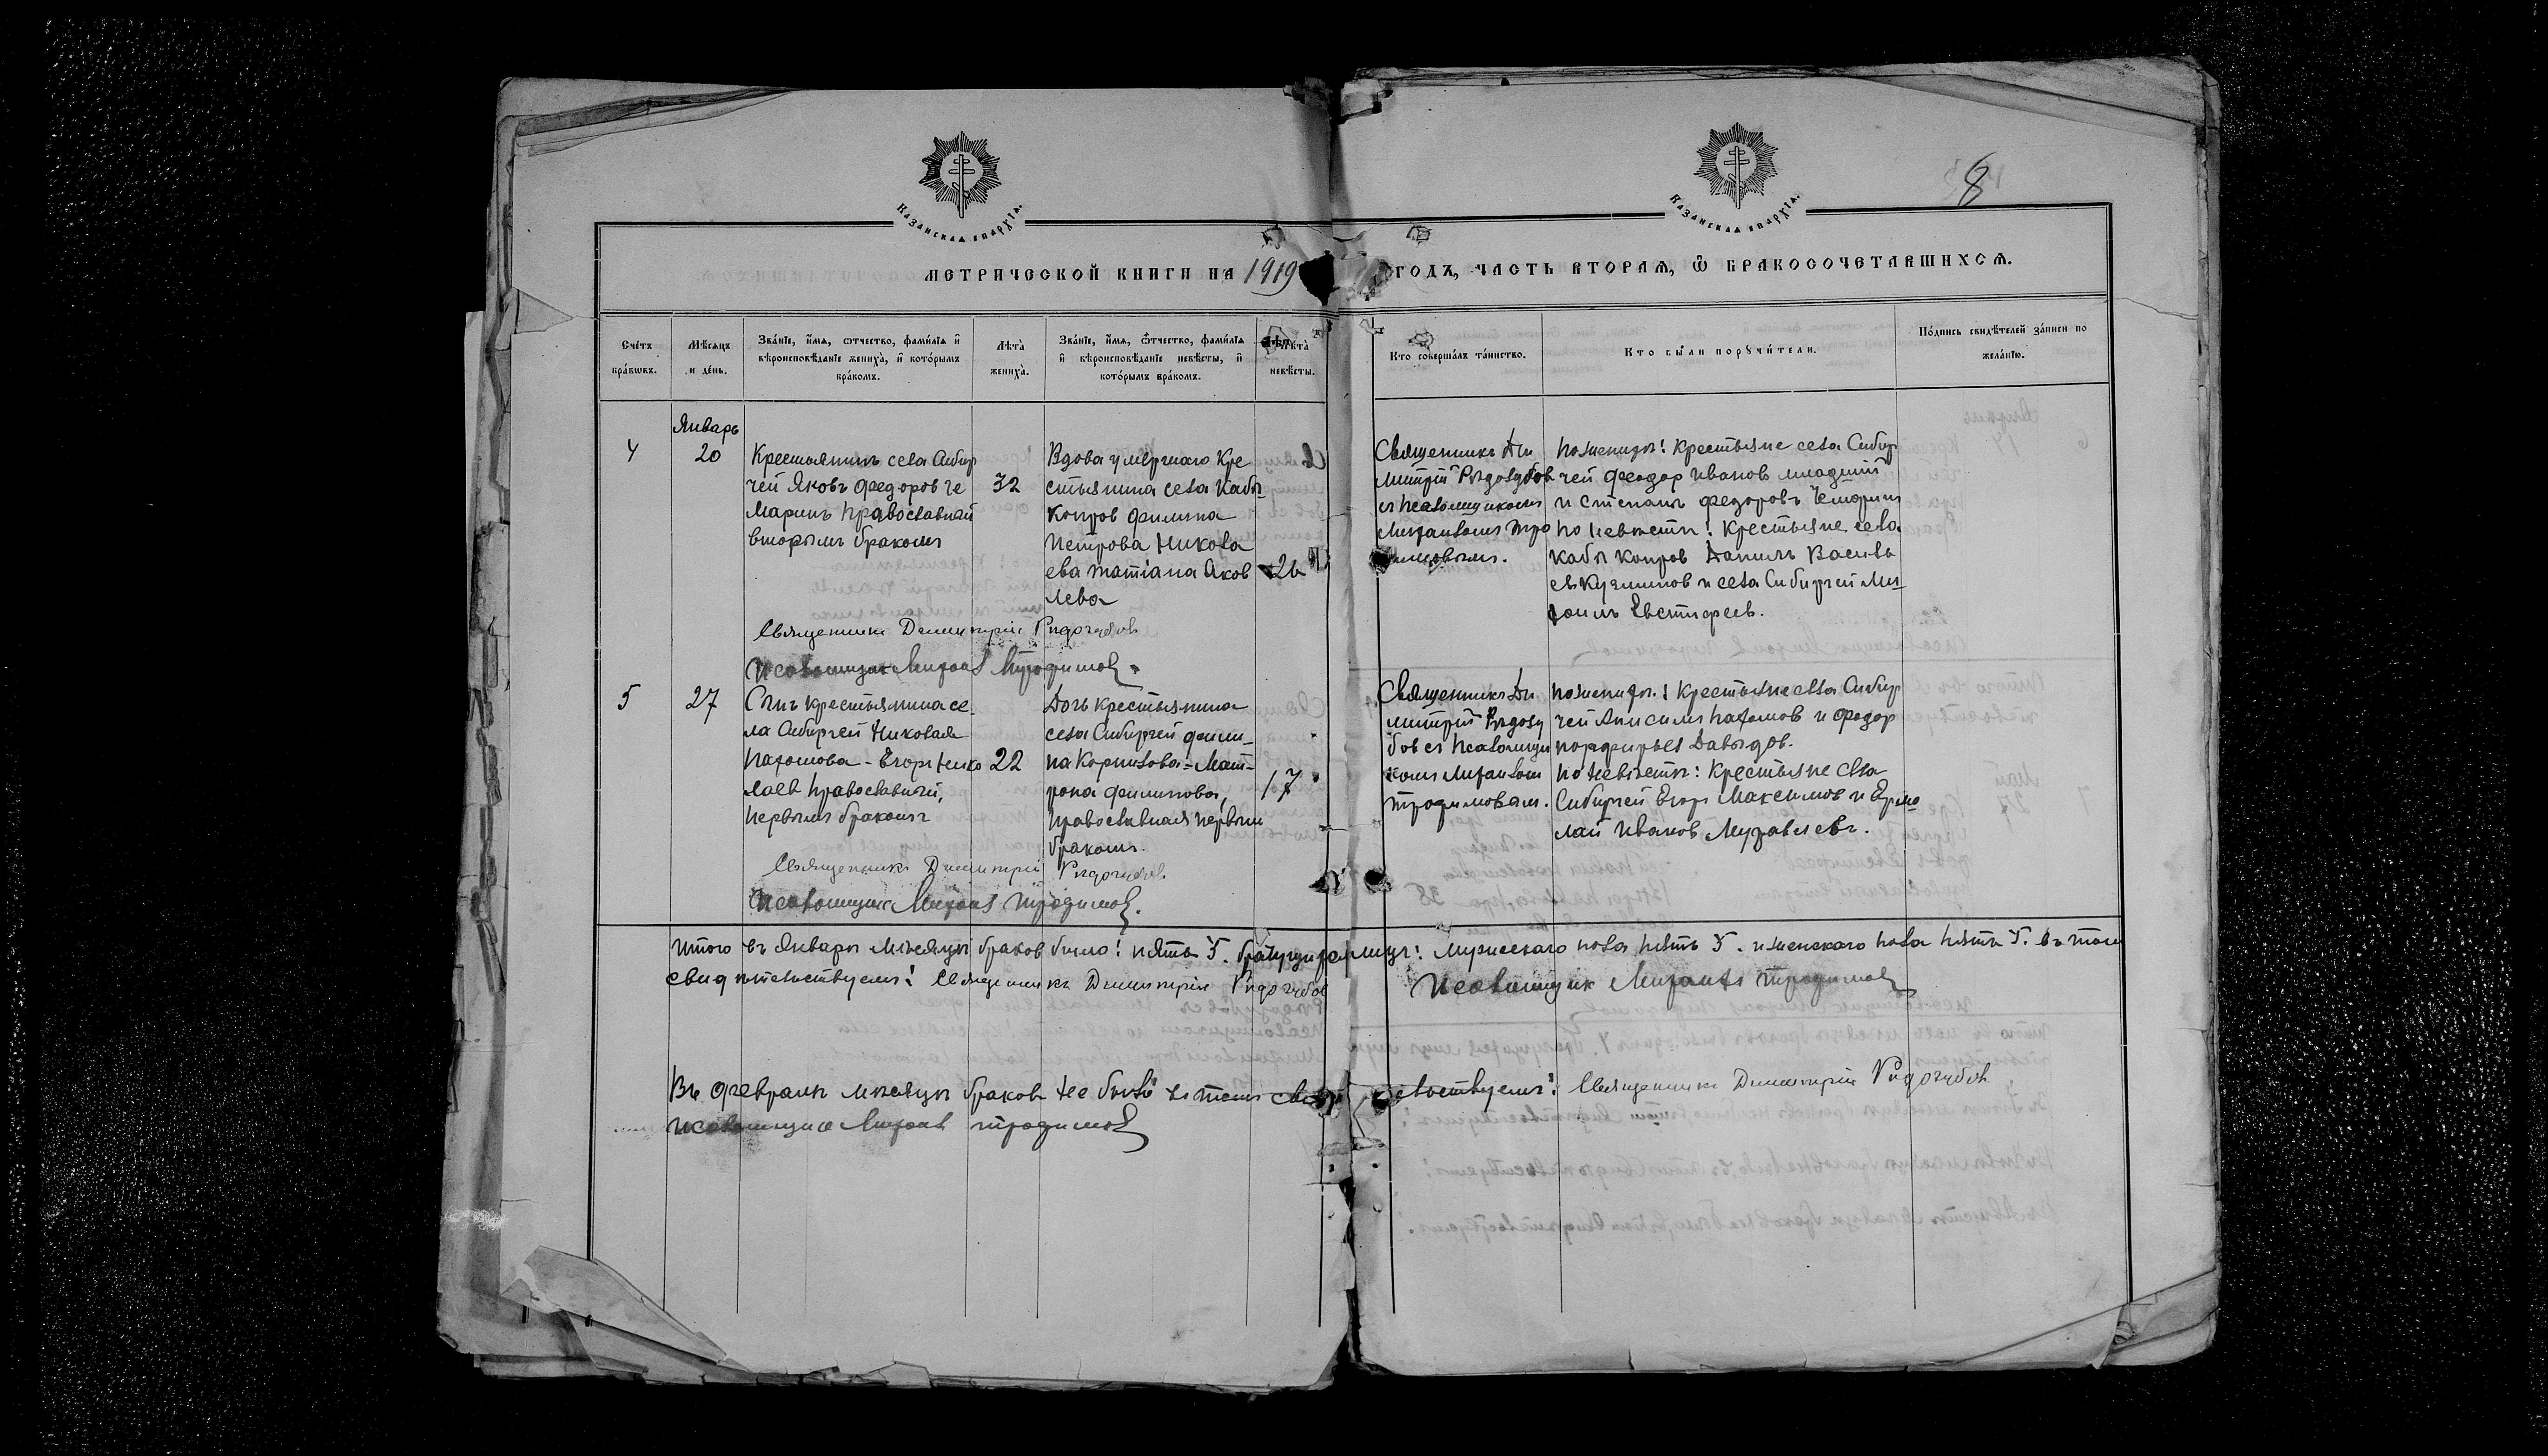 8
Казанская епархїа.
Казанская епархїа.
МЕТРИЧЕСКОЙ КНИГИ НА 1919 ГОДЪ, ЧАСТЬ ВТОРАЯ, Ѿ БРАКОСОЧЕТАВШИХСЯ.
Сче́тъ бра́кωвъ.
Мѣ́сяцъ и де́нь.
Зва́нїе, и́мѧ, ѻ҆тчество, фами́лїѧ и҆ вѣроисповѣ́данїе жениха̀, и҆ кото́рымъ бра́комъ.
Лѣта̀ жениха̀.
Зва́нїе, и́мѧ, ѻ҆́тчество, фами́лїѧ и҆ вѣроисповѣ́данїе невѣ́сты, и҆ кото́рымъ бра́комъ.
Лѣта̀ невѣ́сты.
Кто совершалъ та́инство.
Кто бы́ли порꙋчи́тели.
По́дпись свидѣ́телей за́писи по жела́нїю.
Январь
4
20
Крестьянинъ села Сибир
чей Яковъ Федоровъ Че
маринъ православный
вторымъ бракомъ
32
Вдова умершаго кре
стьянина села Кабы
Копров Филиппа
Петрова Никола
ева Татіана Яков
лева
26
Священникъ Ди
митрій Рѣдозубов
съ псаломщикомъ
Михаиломъ Тро
фимовымъ.
по женихѣ: крестьяне села Сибир
чей Феодор Иванов младший
и Степанъ Федоровъ Чемарин
по невѣстѣ: крестьяне села
Кабы Копров Данилъ Василь
евъ Кузминов и села Сибирчей Ми
хаилъ Евстифеев.
Священникъ Димитрій Рѣдозубов
Псаломщик Михаил Трофимов
5
27
Сынъ крестьянина се
ла Сибирчей Николая
Пахомова - Егоръ Нико
лаев православный,
первымъ бракомъ
22
Дочь крестьянина
села Сибирчей Фили
па Корнилова - Мат
рона Филипова,
православная первым
бракомъ.
17
Священникъ Ди
митрій Рѣдозу
бов съ псаломщи
комъ Михаилом
Трофимовым.
по женихѣ: крестьяне села Сибир
чей Анисим Пахомов и Федор
Порфирьев Давыдов.
по невѣстѣ: крестьяне села
Сибирчей Егор Максимов и Ермо
лай Иванов Муравлевъ.
Священникъ Димитрій Рѣдозубов
Псаломщик Михаил Трофимов.
Итого въ Январѣ мѣсяцѣ браков было: пять 5. брачущихся лицъ: мужескаго пола пять 5. и женскаго пола пять 5. въ том
свидѣтельствуемъ: Священникъ Димитрій Рѣдозубов Псаломщик Михаилъ Трофимов
Въ Февралѣ мѣсяцѣ браков не было въ том свидѣтельствуемъ: Священникъ Димитрій Рѣдозубов
Псаломщик Михаил Трофимов